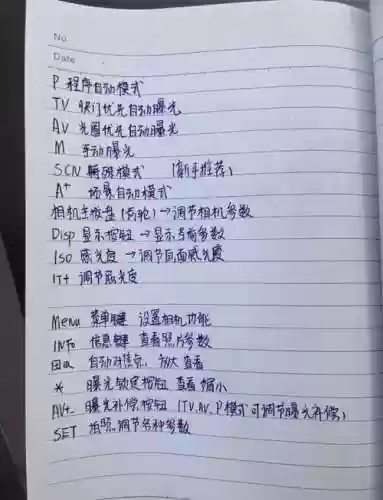 No.
Date
P 程序自动模式
TV 快门优先自动曝光
AV 光圈优先自动曝光
M 手动曝光
SCN 模式 (新手推荐)
A+ 场景自动模式
相机主拨盘(齿轮)→调节相机参数
Disp 显示按钮 →显示当前参数
Iso 感光度 →调节画面感光度
调节感光度
Menu 菜单键 设置相机功能
INFo 信息键 查看照片参数
自动对焦点、放大 查看
* 曝光锁定按钮 查看 缩小
AV± 曝光补偿按钮 (TV.AV.P模式可调节曝光补偿)
SET 拍照.调节各种参数